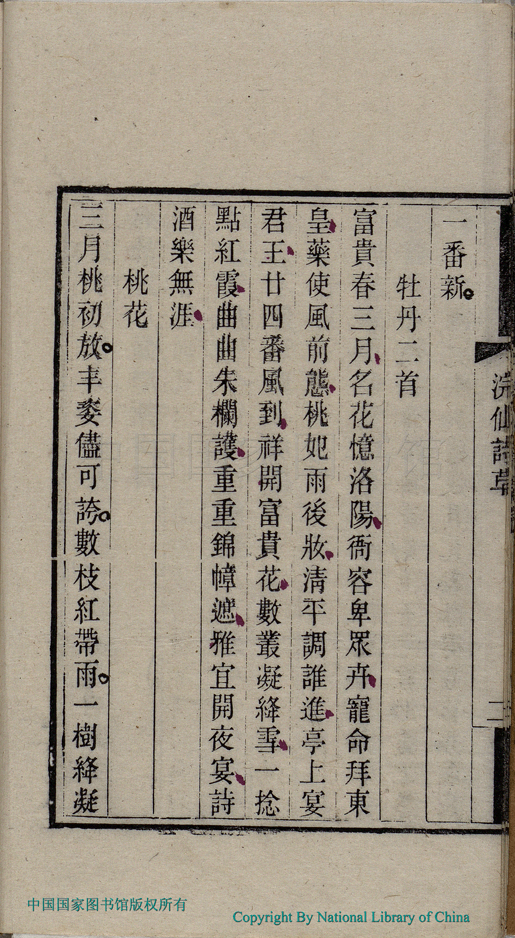 浣仙詩草
二
一番新
牡丹二首
富貴春三月名花憶洛陽衙容卑眾卉寵命拜東
皇藥使風前態桃妃雨後妝清平調誰進亭上宴
君王廿四番風到祥開富貴花數叢凝絳雪一捻
點紅霞曲曲朱欄護重重錦幛遮雅宜開夜宴詩
酒樂無涯
桃花
三月桃初放丰姿儘可誇數枝紅帶雨一樹絳凝
中国国家图书馆版权所有
Copyright By National Library of China